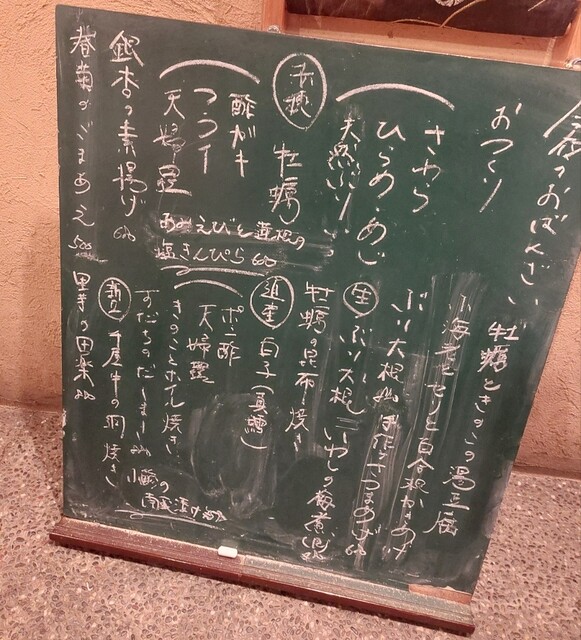 今夜のおばんざい
おつくり
さわら
ひらめ・あじ
天然ぶり
赤穂 牡蠣
酢ガキ
フライ
天婦羅
あみえびと蓮根の
塩きんぴら 600
銀杏の素揚げ 600
春菊のごまあえ 500
牡蠣ときのこの湯豆腐
小海老とセリと百合根かきあげ
ぶり大根
自家製さつまあげ 600
ぶり大根 いわしの梅煮
牡蠣の昆布焼き
白子(真鱈)
ポン酢
天婦羅
きのことホイル焼き
すだちのだしまき
千屋牛の朴焼き
小鯵の
南蛮漬け
里芋の田楽